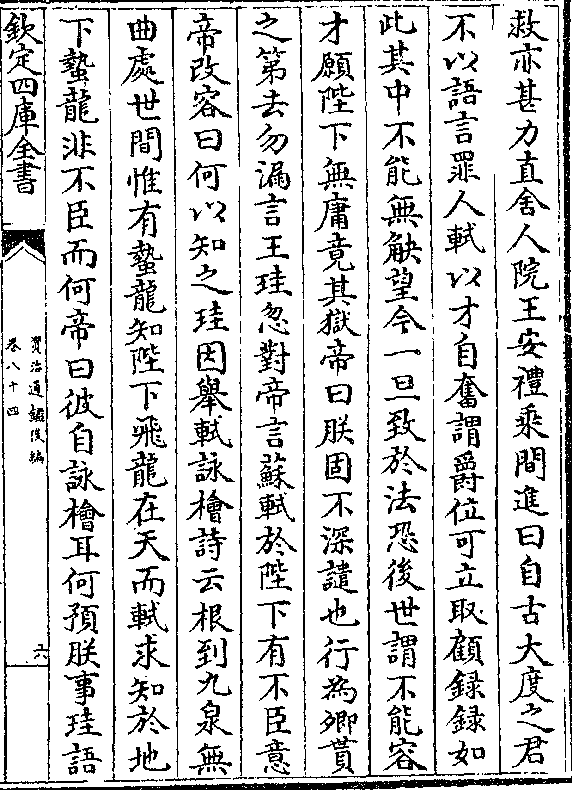 救亦甚力直舍人院王安禮乘間進曰自古大度之君
不以語言罪人軾以才自奮謂爵位可立取顧録録如
此其中不能無觖望今一旦致於法恐後世謂不能容
才願陛下無庸竟其獄帝曰朕固不深譴也行為卿貰
之第去勿漏言王珪忽對帝言蘇軾於陛下有不臣意
帝改容曰何以知之珪因舉軾詠檜詩云根到九泉無
曲處世間惟有蟄龍知陛下飛龍在天而軾求知於地
下蟄龍非不臣而何帝曰彼自詠檜耳何預朕事珪語
欽定四庫全書
資治通鑑後編
卷八十四
六